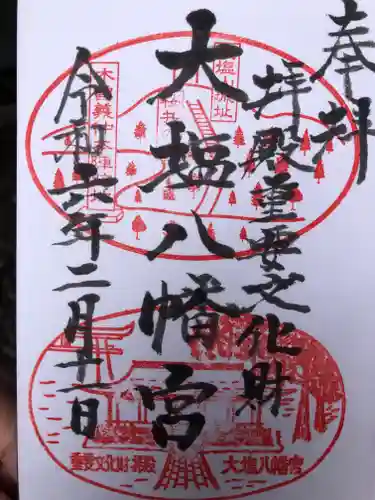 奉拝
拝殿重要文化財
大塩八幡宮
令和六年二月廿一日
重要文化財拝殿
大塩八幡宮